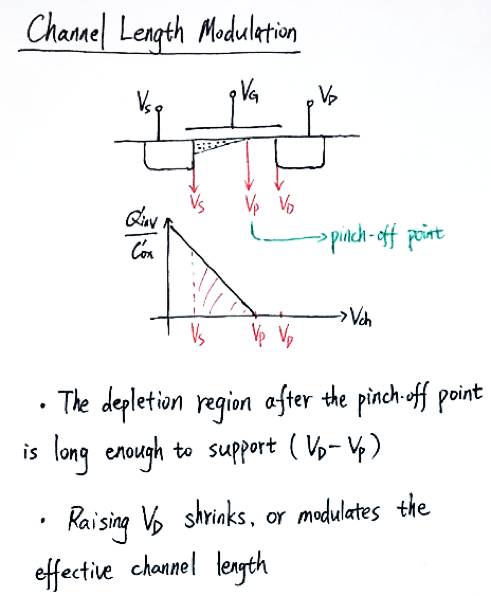 Channel Length Modulation
VS VG VD
VS VP VD
Q'inv
C'ox
pinch-off point
Vch
VS VP VD
· The depletion region after the pinch-off point
is long enough to support (VD-VP)
· Raising VD shrinks, or modulates the
effective channel length